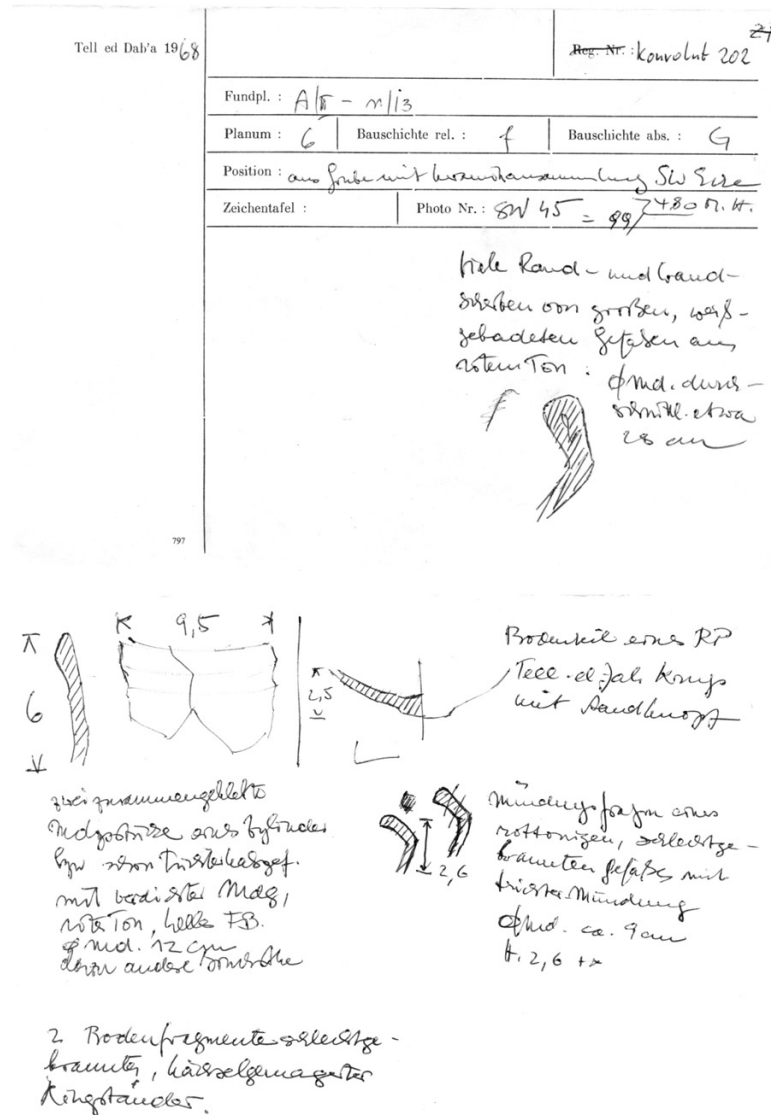 Tell ed Dab'a 1968
Reg. Nr. : Konvolut 202
Fundpl. : A/II - n/13
Planum : 6
Bauschichte rel. : f
Bauschichte abs. : G
Position : aus Grube mit SW Ecke
Zeichentafel :
Photo Nr. : SW 45 = 99/
viele Rand- und Wand-
scherben von großen, weiß-
gebadeten Gefäßen aus
rotem Ton :
ϕ Md. durch-
schnittl. etwa
28 cm
797
9,5
6
2,5
Bodenteil eines RP
Tell-el-Jah. Krugs
mit Standknopf
zwei zusammengeklebte
eines Zylinder
bzw
mit verdickter Mdg,
roter Ton, helle FB.
ϕ Md. 12 cm
davon andere
2,6
Mündungsfragm eines
rottonigen, schlechtge-
brannten Gefäßes mit
Mündung
ϕ Md. ca. 9 cm
H. 2,6 +x
2 Bodenfragmente schlechtge-
brannter, häckselgemagerter
Ringständer.